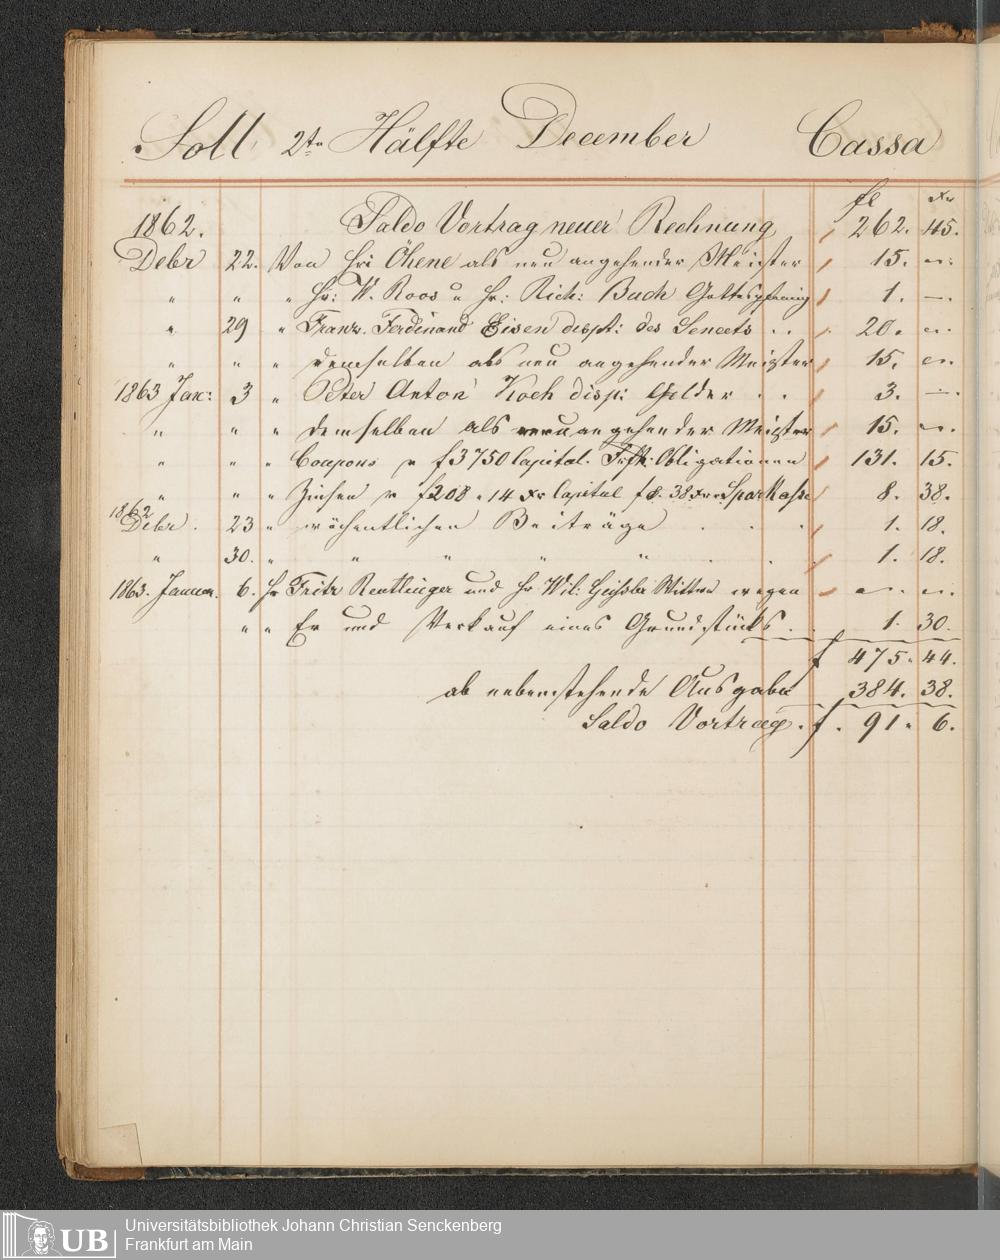 Soll 2te Hälfte December Cassa
fl xr
1862. Saldo Vortrag neuer Rechnung 262. 45.
Debr 22. Von Hrn Öhene als neu angehender Meister 15. —.
" " " Hr: W. Roos u Hr: Rich: Bach Gottespfennig 1. —.
" 29 " Franz. Ferdinand Eisen dispt: des .. 20. —.
" " " demselben als neu angehender Meister 15. —.
1863 Jan: 3 " Peter Anton Koch disp: Gelder . . 3. —.
" " " demselben als neuangehender Meister 15. —.
" " " Coupons v f 3750 Capital. Frkft: Obligationen 131. 15.
" " " Zinsen v f 208 . 14 xr Capital f 8. 38 xr v. Sparkasse 8. 38.
1862 Debr . 23 " wöchentlichen Beiträge . . . 1. 18.
" 30. " " " " " . . 1. 18.
1863. Januar. 6. Hr Fritz Reutlinger und Hr Wil: Wittwe wegen —. —.
" " En und Verkauf eines Grundstücks . . 1. 30.
f 475. 44.
ab nebenstehende Ausgabe 384. 38.
Saldo Vortrag . f . 91. 6.
UB Universitätsbibliothek Johann Christian Senckenberg
Frankfurt am Main